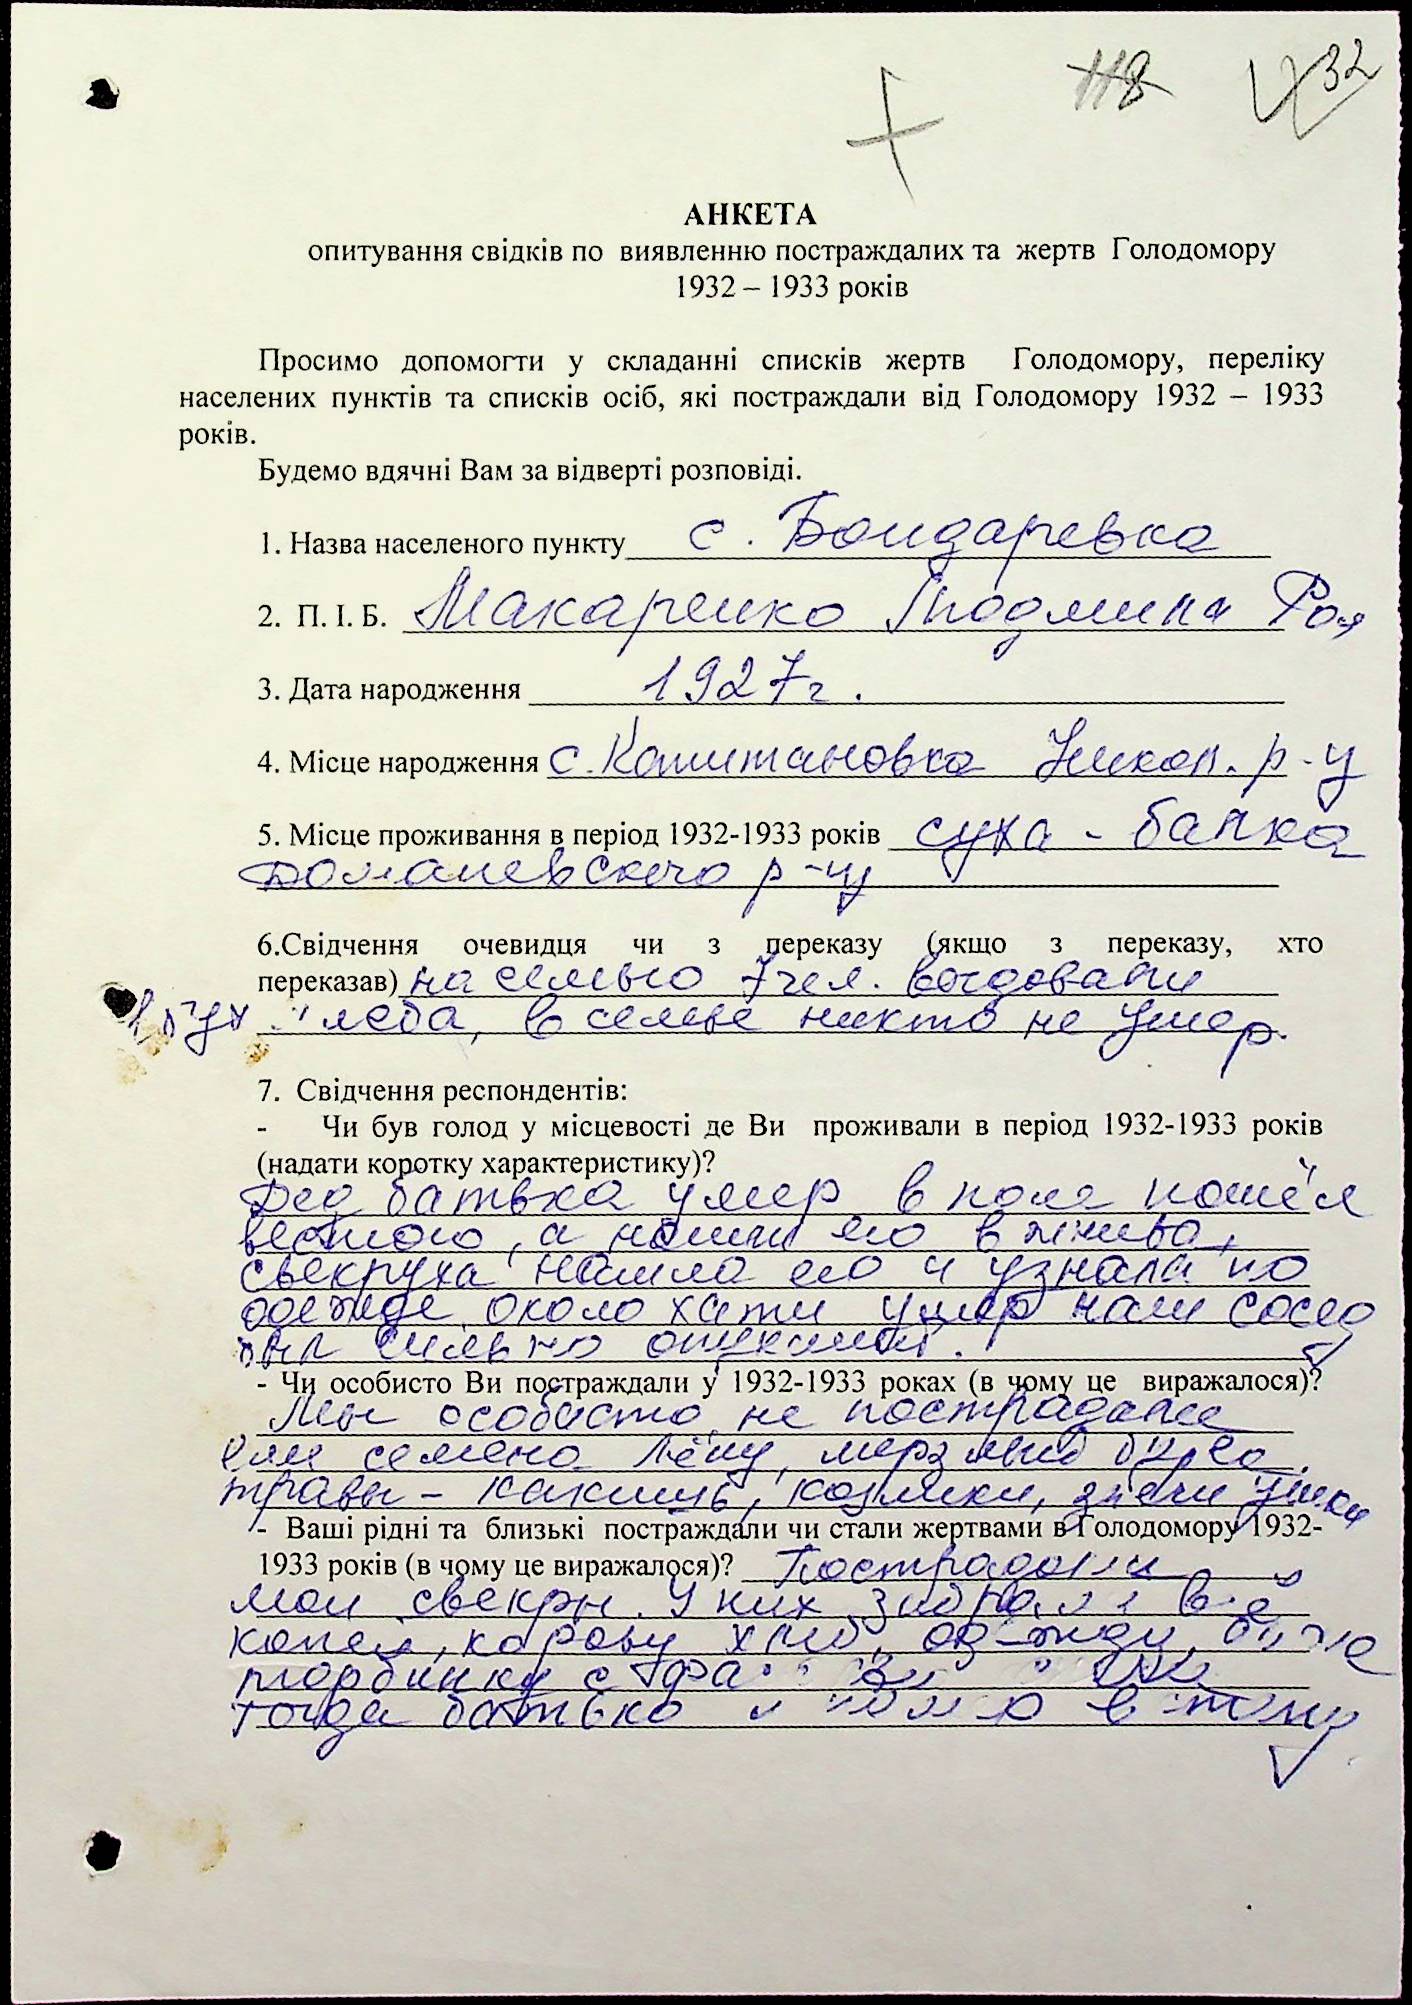 118 32
АНКЕТА
опитування свідків по виявленню постраждалих та жертв Голодомору
1932 – 1933 років
Просимо допомогти у складанні списків жертв Голодомору, переліку
населених пунктів та списків осіб, які постраждали від Голодомору 1932 – 1933
років.
Будемо вдячні Вам за відверті розповіді.
1. Назва населеного пункту с. Бондаревка
2. П. І. Б. Макаренко Людмила Ром
3. Дата народження 1927г.
4. Місце народження с. Капитановка р-у
5. Місце проживання в період 1932-1933 років суха - балка
Доманевского р-у
6.Свідчення очевидця чи з переказу (якщо з переказу, хто
переказав) на семью 7 чел. выдавали
хлеба, в семье никто не умер.
7. Свідчення респондентів:
- Чи був голод у місцевості де Ви проживали в період 1932-1933 років
(надати коротку характеристику)?
Дед батька умер в поле пошёл
весною, а нашли его в жнива,
свекруха нашла его и узнала по
одежде. около хати умер наш сосед
был сильно опухший.
- Чи особисто Ви постраждали у 1932-1933 роках (в чому це виражалося)?
Мы особисто не пострадали
ели семена
травы - козлики,
- Ваші рідні та близькі постраждали чи стали жертвами в Голодомору 1932-
1933 років (в чому це виражалося)? Пострадали
мои свекры. У них забрали всё
коней, корову, хлеб, одежду,
торбинку с
тогда батько в